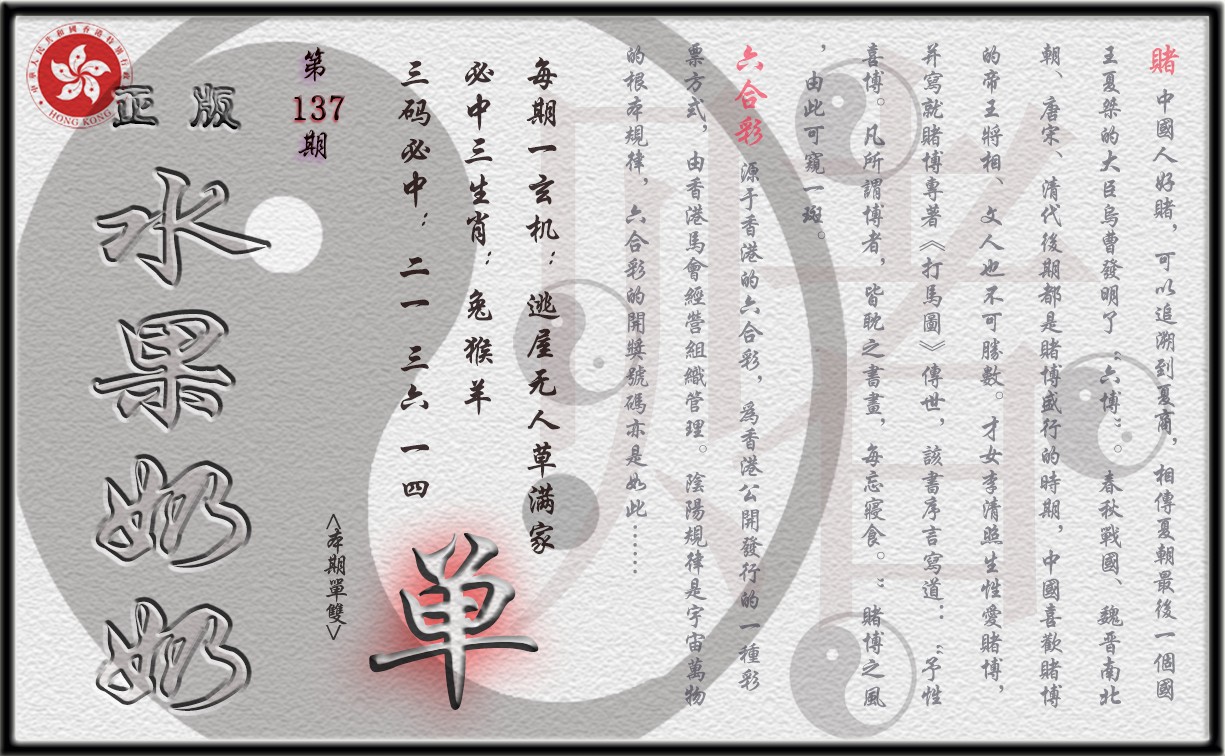 賭 中國人好賭，可以追溯到夏商，相傳夏朝最後一個國
王夏桀的大臣烏曹發明了“六博”。春秋戰國、魏晋南北
朝、唐宋、清代後期都是賭博盛行的時期，中國喜歡賭博
的帝王將相、文人也不可勝數。才女李清照生性愛賭博，
并寫就賭博專著《打馬圖》傳世，該書序言寫道：“予性
喜博。凡所謂博者，皆耽之書畫，每忘寢食。”賭博之風
，由此可窺一斑。
六合彩 源于香港的六合彩，爲香港公開發行的一種彩
票方式，由香港馬會經營組織管理。陰陽規律是宇宙萬物
的根本規律，六合彩的開獎號碼亦是如此……
每期一玄机：逃屋无人草满家
必中三生肖：兔猴羊
三码必中：二一 三六 一四
单
<本期單雙>
第
137
期
正版
水果奶奶
中華人民共和國香港特別行政區
HONG KONG
賭